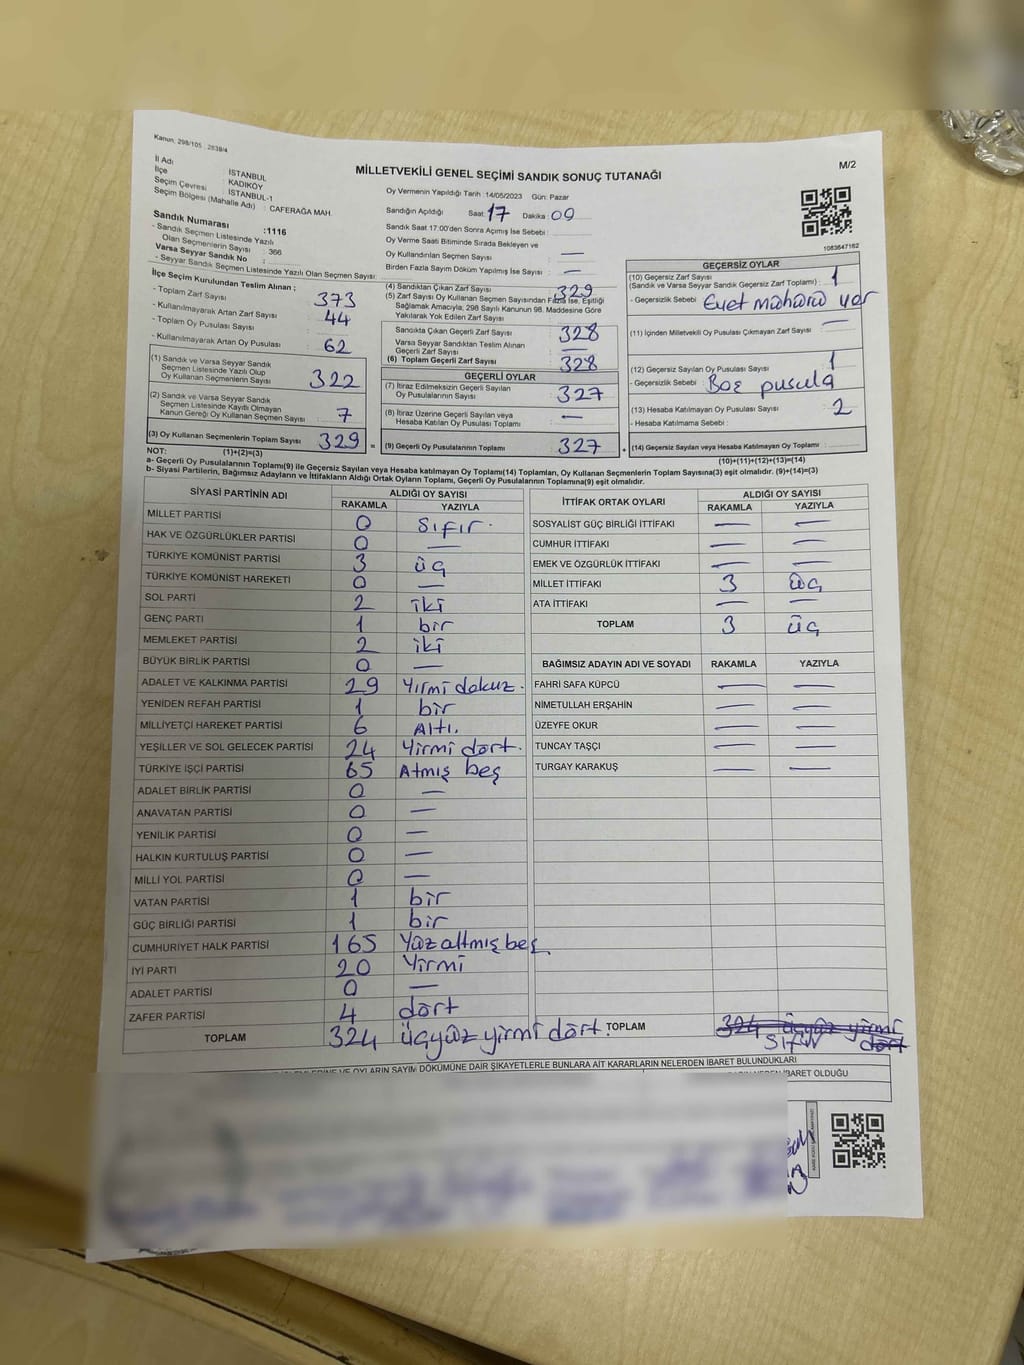 Kanun: 298/105 , 2839/4
M/2
MİLLETVEKİLİ GENEL SEÇİMİ SANDIK SONUÇ TUTANAĞI
İl Adı : İSTANBUL
İlçe : KADIKÖY
Seçim Çevresi : İSTANBUL-1
Seçim Bölgesi (Mahalle Adı) : CAFERAĞA MAH.
Sandık Numarası :1116
- Sandık Seçmen Listesinde Yazılı
Olan Seçmenlerin Sayısı : 366
Varsa Seyyar Sandık No :
- Seyyar Sandık Seçmen Listesinde Yazılı Olan Seçmen Sayısı:
Oy Vermenin Yapıldığı Tarih :14/05/2023 Gün: Pazar
Sandığın Açıldığı Saat: 17 Dakika : 09
Sandık Saat 17:00'den Sonra Açılmış İse Sebebi :
Oy Verme Saati Bitiminde Sırada Bekleyen ve
Oy Kullandırılan Seçmen Sayısı : —
Birden Fazla Sayım Döküm Yapılmış İse Sayısı : —
1083647162
İlçe Seçim Kurulundan Teslim Alınan ;
- Toplam Zarf Sayısı : 373
- Kullanılmayarak Artan Zarf Sayısı : 44
- Toplam Oy Pusulası Sayısı :
- Kullanılmayarak Artan Oy Pusulası : 62
(1) Sandık ve Varsa Seyyar Sandık
Seçmen Listesinde Yazılı Olup
Oy Kullanan Seçmenlerin Sayısı : 322
(2) Sandık ve Varsa Seyyar Sandık
Seçmen Listesinde Kayıtlı Olmayan
Kanun Gereği Oy Kullanan Seçmen Sayısı : 7
(3) Oy Kullanan Seçmenlerin Toplam Sayısı : 329 =
(1)+(2)=(3)
(4) Sandıktan Çıkan Zarf Sayısı : 329
(5) Zarf Sayısı Oy Kullanan Seçmen Sayısından Fazla İse, Eşitliği
Sağlamak Amacıyla, 298 Sayılı Kanunun 98. Maddesine Göre
Yakılarak Yok Edilen Zarf Sayısı :
Sandıkta Çıkan Geçerli Zarf Sayısı : 328
Varsa Seyyar Sandıktan Teslim Alınan
Geçerli Zarf Sayısı : —
(6) Toplam Geçerli Zarf Sayısı : 328
GEÇERLİ OYLAR
(7) İtiraz Edilmeksizin Geçerli Sayılan
Oy Pusulalarının Sayısı : 327
(8) İtiraz Üzerine Geçerli Sayılan veya
Hesaba Katılan Oy Pusulası Toplamı : —
(9) Geçerli Oy Pusulalarının Toplamı : 327 +
GEÇERSİZ OYLAR
(10) Geçersiz Zarf Sayısı
(Sandık ve Varsa Seyyar Sandık Geçersiz Zarf Toplamı) : 1
- Geçersizlik Sebebi : Evet mührü var
(11) İçinden Milletvekili Oy Pusulası Çıkmayan Zarf Sayısı : —
(12) Geçersiz Sayılan Oy Pusulası Sayısı : 1
- Geçersizlik Sebebi : Boş pusula
(13) Hesaba Katılmayan Oy Pusulası Sayısı : 2
- Hesaba Katılmama Sebebi :
(14) Geçersiz Sayılan veya Hesaba Katılmayan Oy Toplamı :
(10)+(11)+(12)+(13)=(14)
NOT:
a- Geçerli Oy Pusulalarının Toplamı(9) ile Geçersiz Sayılan veya Hesaba katılmayan Oy Toplamı(14) Toplamları, Oy Kullanan Seçmenlerin Toplam Sayısına(3) eşit olmalıdır. (9)+(14)=(3)
b- Siyasi Partilerin, Bağımsız Adayların ve İttifakların Aldığı Ortak Oyların Toplamı, Geçerli Oy Pusulalarının Toplamına(9) eşit olmalıdır.
SİYASİ PARTİNİN ADI ALDIĞI OY SAYISI
RAKAMLA YAZIYLA
MİLLET PARTİSİ 0 Sıfır.
HAK VE ÖZGÜRLÜKLER PARTİSİ 0 —
TÜRKİYE KOMÜNİST PARTİSİ 3 üç
TÜRKİYE KOMÜNİST HAREKETİ 0 —
SOL PARTİ 2 iki
GENÇ PARTİ 1 bir
MEMLEKET PARTİSİ 2 iki
BÜYÜK BİRLİK PARTİSİ 0 —
ADALET VE KALKINMA PARTİSİ 29 Yirmi dokuz.
YENİDEN REFAH PARTİSİ 1 bir
MİLLİYETÇİ HAREKET PARTİSİ 6 Altı.
YEŞİLLER VE SOL GELECEK PARTİSİ 24 Yirmi dört.
TÜRKİYE İŞÇİ PARTİSİ 65 Atmış beş
ADALET BİRLİK PARTİSİ 0 —
ANAVATAN PARTİSİ 0 —
YENİLİK PARTİSİ 0 —
HALKIN KURTULUŞ PARTİSİ 0 —
MİLLİ YOL PARTİSİ 0 —
VATAN PARTİSİ 1 bir
GÜÇ BİRLİĞİ PARTİSİ 1 bir
CUMHURİYET HALK PARTİSİ 165 Yüz altmış beş
İYİ PARTİ 20 Yirmi
ADALET PARTİSİ 0 —
ZAFER PARTİSİ 4 dört
TOPLAM 324 üçyüz yirmi dört.
İTTİFAK ORTAK OYLARI ALDIĞI OY SAYISI
RAKAMLA YAZIYLA
SOSYALİST GÜÇ BİRLİĞİ İTTİFAKI — —
CUMHUR İTTİFAKI — —
EMEK VE ÖZGÜRLÜK İTTİFAKI — —
MİLLET İTTİFAKI 3 üç
ATA İTTİFAKI — —
TOPLAM 3 üç
BAĞIMSIZ ADAYIN ADI VE SOYADI RAKAMLA YAZIYLA
FAHRİ SAFA KÜPCÜ — —
NİMETULLAH ERŞAHİN — —
ÜZEYFE OKUR — —
TUNCAY TAŞÇI — —
TURGAY KARAKUŞ — —
TOPLAM 324 üçyüz yirmi dört
Sıfır
OYLARIN SAYIM DÖKÜMÜNE DAİR ŞİKAYETLERLE BUNLARA AİT KARARLARIN NELERDEN İBARET BULUNDUKLARI
İBARET OLDUĞU